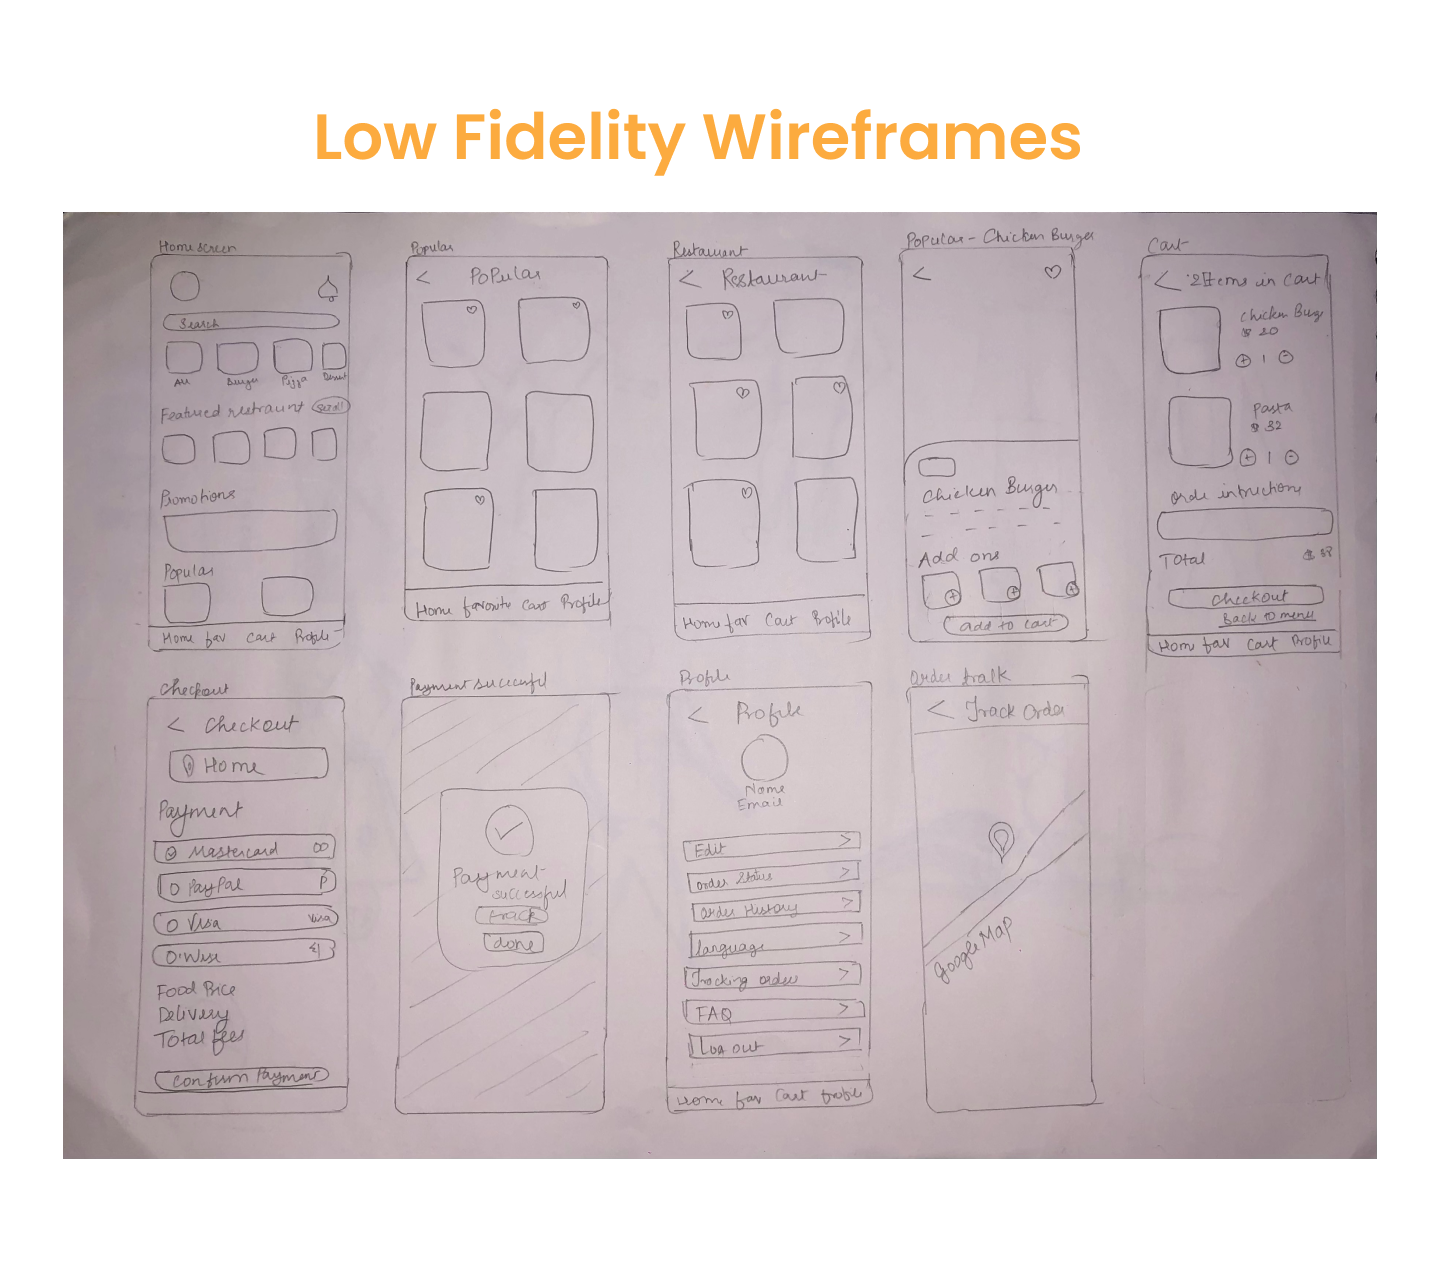 Low Fidelity Wireframes
Home screen
Search
All Burger Pizza Donut
Featured restraunt
Promotions
Popular
Home fav Cart Profile
Popular
< PoPular
Home favorite Cart Profile
Restaurant
< Restaurant
Home fav Cart Profile
Popular - Chicken Burger
<
Chicken Burger
Add ons
add to cart
Cart
< 2 Items in Cart
Chicken Burge
$ 20
+ 1 -
Pasta
$ 32
+ 1 -
Orde intructions
Total
Checkout
Back to menu
Home fav Cart Profile
Checkout
< Checkout
Home
Payment
Mastercard
PayPal P
Visa Visa
Wise
Food Price
Delivery
Total fees
Confirm Payment
Payment succesful
Payment
successful
track
done
Profile
< Profile
Name
Email
Edit >
Order Status >
Order History >
language >
Tracking order >
FAQ >
Log out >
Home fav Cart Profile
Order tralk
< Track Order
Google Map